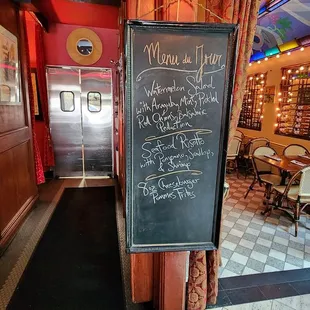 Menu du Jour
Watermelon Salad
with Arugula, Mint, Pickled
Red Onions, & Balsamic
Reduction
Seafood Risotto
with Prawns, Scallops,
8oz Cheeseburger
Pommes Frites